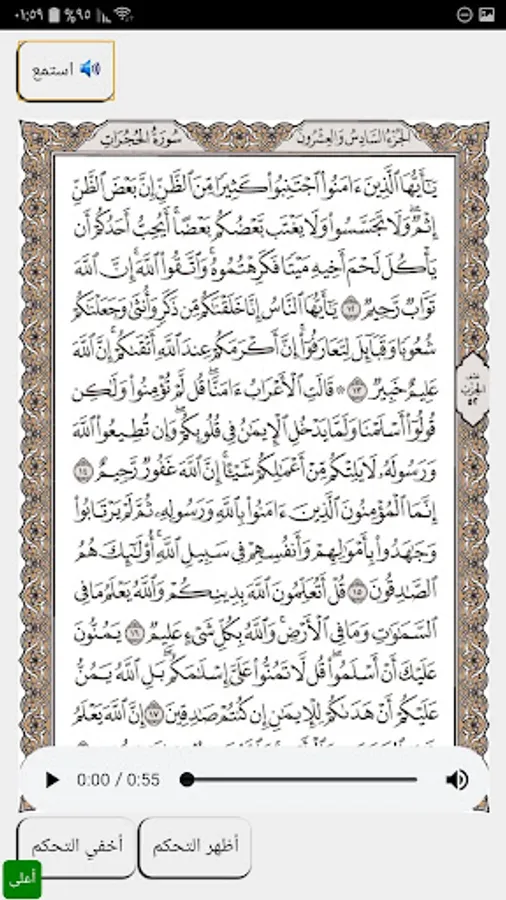 ٠١:٥٩ ٩٥%
استمع
سُورَةُ الحُجُرَاتِ
الجُزءُ السَّادِسُ وَالعِشْرُونَ
يَٰٓأَيُّهَا ٱلَّذِينَ ءَامَنُوا۟ ٱجْتَنِبُوا۟ كَثِيرًا مِّنَ ٱلظَّنِّ إِنَّ بَعْضَ ٱلظَّنِّ
إِثْمٌ ۖ وَلَا تَجَسَّسُوا۟ وَلَا يَغْتَب بَّعْضُكُم بَعْضًا ۚ أَيُحِبُّ أَحَدُكُمْ أَن
يَأْكُلَ لَحْمَ أَخِيهِ مَيْتًا فَكَرِهْتُمُوهُ ۚ وَٱتَّقُوا۟ ٱللَّهَ ۚ إِنَّ ٱللَّهَ
تَوَّابٌ رَّحِيمٌ ١٢ يَٰٓأَيُّهَا ٱلنَّاسُ إِنَّا خَلَقْنَٰكُم مِّن ذَكَرٍ وَأُنثَىٰ وَجَعَلْنَٰكُمْ
شُعُوبًا وَقَبَآئِلَ لِتَعَارَفُوٓا۟ ۚ إِنَّ أَكْرَمَكُمْ عِندَ ٱللَّهِ أَتْقَىٰكُمْ ۚ إِنَّ ٱللَّهَ
عَلِيمٌ خَبِيرٌ ١٣ ۞ قَالَتِ ٱلْأَعْرَابُ ءَامَنَّا ۖ قُل لَّمْ تُؤْمِنُوا۟ وَلَٰكِن
نصف الحزب ٥٢
قُولُوٓا۟ أَسْلَمْنَا وَلَمَّا يَدْخُلِ ٱلْإِيمَٰنُ فِى قُلُوبِكُمْ ۖ وَإِن تُطِيعُوا۟ ٱللَّهَ
وَرَسُولَهُۥ لَا يَلِتْكُم مِّنْ أَعْمَٰلِكُمْ شَيْـًٔا ۚ إِنَّ ٱللَّهَ غَفُورٌ رَّحِيمٌ ١٤
إِنَّمَا ٱلْمُؤْمِنُونَ ٱلَّذِينَ ءَامَنُوا۟ بِٱللَّهِ وَرَسُولِهِۦ ثُمَّ لَمْ يَرْتَابُوا۟
وَجَٰهَدُوا۟ بِأَمْوَٰلِهِمْ وَأَنفُسِهِمْ فِى سَبِيلِ ٱللَّهِ ۚ أُو۟لَٰٓئِكَ هُمُ
ٱلصَّٰدِقُونَ ١٥ قُلْ أَتُعَلِّمُونَ ٱللَّهَ بِدِينِكُمْ وَٱللَّهُ يَعْلَمُ مَا فِى
ٱلسَّمَٰوَٰتِ وَمَا فِى ٱلْأَرْضِ ۚ وَٱللَّهُ بِكُلِّ شَىْءٍ عَلِيمٌ ١٦ يَمُنُّونَ
عَلَيْكَ أَنْ أَسْلَمُوا۟ ۖ قُل لَّا تَمُنُّوا۟ عَلَىَّ إِسْلَٰمَكُم ۖ بَلِ ٱللَّهُ يَمُنُّ
عَلَيْكُمْ أَنْ هَدَىٰكُمْ لِلْإِيمَٰنِ إِن كُنتُمْ صَٰدِقِينَ ١٧ إِنَّ ٱللَّهَ يَعْلَمُ
0:00 / 0:55
أظهر التحكم
أخفي التحكم
أعلي